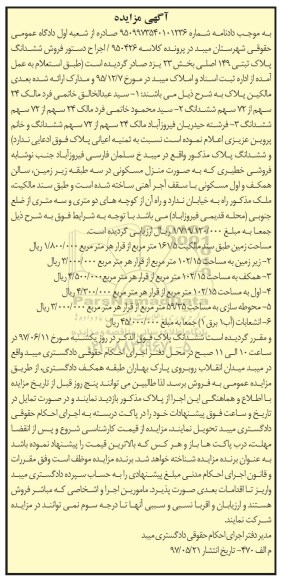 آگهی مزایده
به موجب دادنامه شماره ۹۵۰۹۹۷۳۵۴۰۱۰۱۲۳۶ صادره از شعبه اول دادگاه عمومی
حقوقی شهرستان میبد در پرونده کلاسه ۹۵۰۴۲۶ / اجرا ح دستور فروش ششدانگ
پلاک ثبتی ۱۴۹ اصلی بخش ۲۳ یزد صادر گردیده است (طبق استعلام به عمل
آمده از اداره ثبت اسناد و املاک میبد در مورخ ۹۵/۱۲/۷ و مدارک ارائه شده بعدی
مالکین پلاک به شرح ذیل می باشند: ۱- سید عبدالخالق خاتمی فرد مالک ۲۴
سهم از ۷۲ سهم ششدانگ ۲- سید محمود خاتمی فرد مالک ۲۴ سهم از ۷۲ سهم
ششدانگ ۳- فرشته حیدریان فیروزآباد مالک ۲۴ سهم از ۷۲ سهم ششدانگ و خانم
پروین عزیزی اعلام نموده است نسبت به ثمنیه اعیانی پلاک فوق ادعایی ندارد)
و ششدانگ پلاک مذکور واقع در میبد خ سلمان فارسی فیروزآباد جنب نوشابه
فروشی خطیری که به صورت منزل مسکونی در سه طبقه زیر زمین، سالن
همکف و اول مسکونی با سقف آجر آهنی ساخته شده است و طبق سند مالکیت،
ملک مذکور راه به خیابان ندارد و راه آن از کوچه های دو متری و سه متری از ضلع
جنوبی (محله قدیمی فیروزآباد) می باشد با توجه به شرایط فوق به شرح ذیل
جمعا به مبلغ ریال ارزیابی گردیده است.
مساحت زمین طبق سند مالکیت ۱۶۷/۵ متر مربع از قرار هر متر مربع ۱/۸۰۰/۰۰۰ ریال
۲- زیر زمین به مساحت ۱۰۲/۱۵ متر مربع از قرار هر متر مربع ۲/۰۰۰/۰۰۰ ریال
۳- همکف به مساحت ۱۰۲/۱۵ متر مربع از قرار هر متر مربع ۴/۵۰۰/۰۰۰ ریال
۴- اول به مساحت ۱۰۲/۱۵ متر مربع از قرار هر متر مربع ۴/۳۰۰/۰۰۰ ریال
۵- محوطه سازی به مساحت متر مربع از قرار هر متر مربع ریال
۶- انشعابات (آب۱ برق ۱) جمعا به مبلغ ۴۵/۰۰۰/۰۰۰ ریال
و مقرر گردیده است ششدانگ پلاک فوق الذکر در روز یکشنبه مورخ ۹۷/۰۶/۱۱ در
ساعت ۱۰ الی ۱۱ صبح در محل دفتر اجرای احکام حقوقی دادگستری میبد واقع
در میبد میدان انقلاب روبروی پارک بهاران طبقه همکف دادگستری، از طریق
مزایده عمومی به فروش برسد. لذا طالبین می توانند پنج روز قبل از تاریخ مزایده
با اطلاع و هماهنگی این اجرا از پلاک مذکور بازدید نمایند و در صورت تمایل در
تاریخ و ساعت فوق پیشنهادات خود را در پاکت دربسته به اجرای احکام حقوقی
دادگستری میبد تحویل نمایند. مزایده از قیمت کارشناسی شروع و پس از انقضا
مهلت، درب پاکت ها باز و هر کس که بالاترین قیمت را پیشنهاد نموده باشد
به عنوان برنده مزایده شناخته خواهد شد. برنده مزایده موظف است وفق مقررات
و قانون اجرای احکام مدنی مبلغ پیشنهادی را به حساب سپرده دادگستری میبد
واریز تا اقدامات بعدی صورت پذیرد. مامورین اجرا و اشخاصی که مباشر فروش
هستند و ارزیابان و اقربا نسبی و سببی آنها تا درجه سوم نمی توانند در مزایده
شرکت نمایند.
مدیر دفتر اجرای احکام حقوقی دادگستری میبد
م الف ۴۷۰- تاریخ انتشار ۹۷/۰۵/۲۱